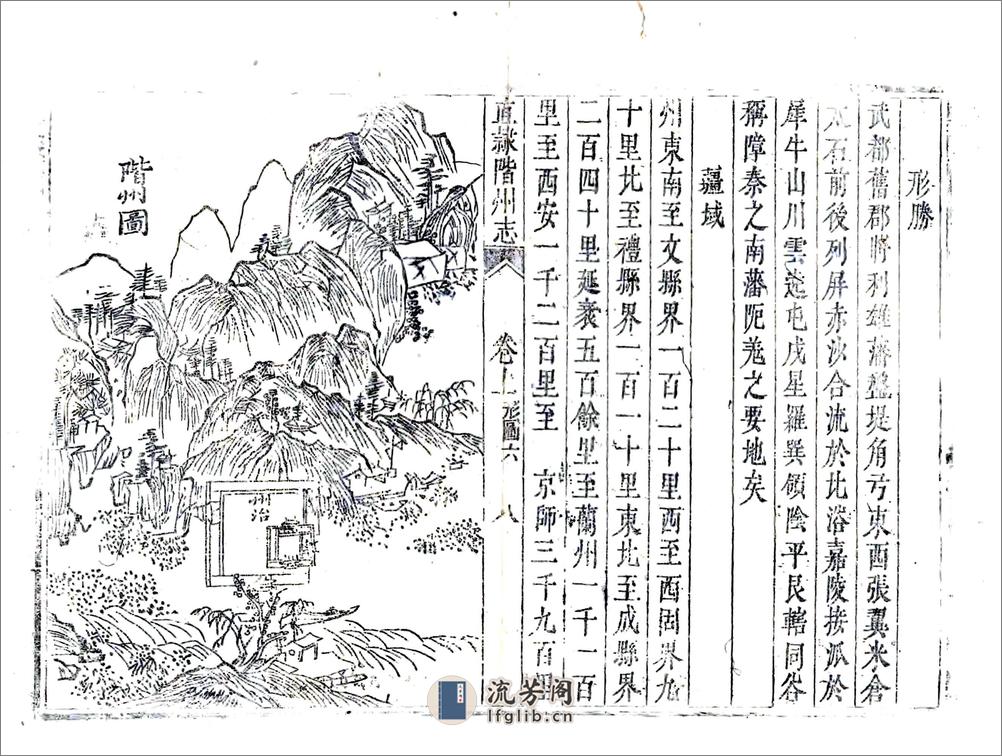 形勝
武都舊郡將利雄藩盤堤角亏東西張翼米倉
石前後列屏赤沙合流於北浴嘉陵接派於
犀牛山川雲遶屯戍星羅巽領陰平艮轄同谷
稱障秦之南藩阨羗之要地矣
疆域
州東南至文縣界一百二十里西至西固界九
十里北至禮縣界一百一十里東北至成縣界
二百四十里延袤五百餘里至蘭州一千一百
里至西安一千二百里至 京師三千九百里
直隸階州志 卷上 形圖六 八
階州圖
州治
流芳阁
lfglib.cn